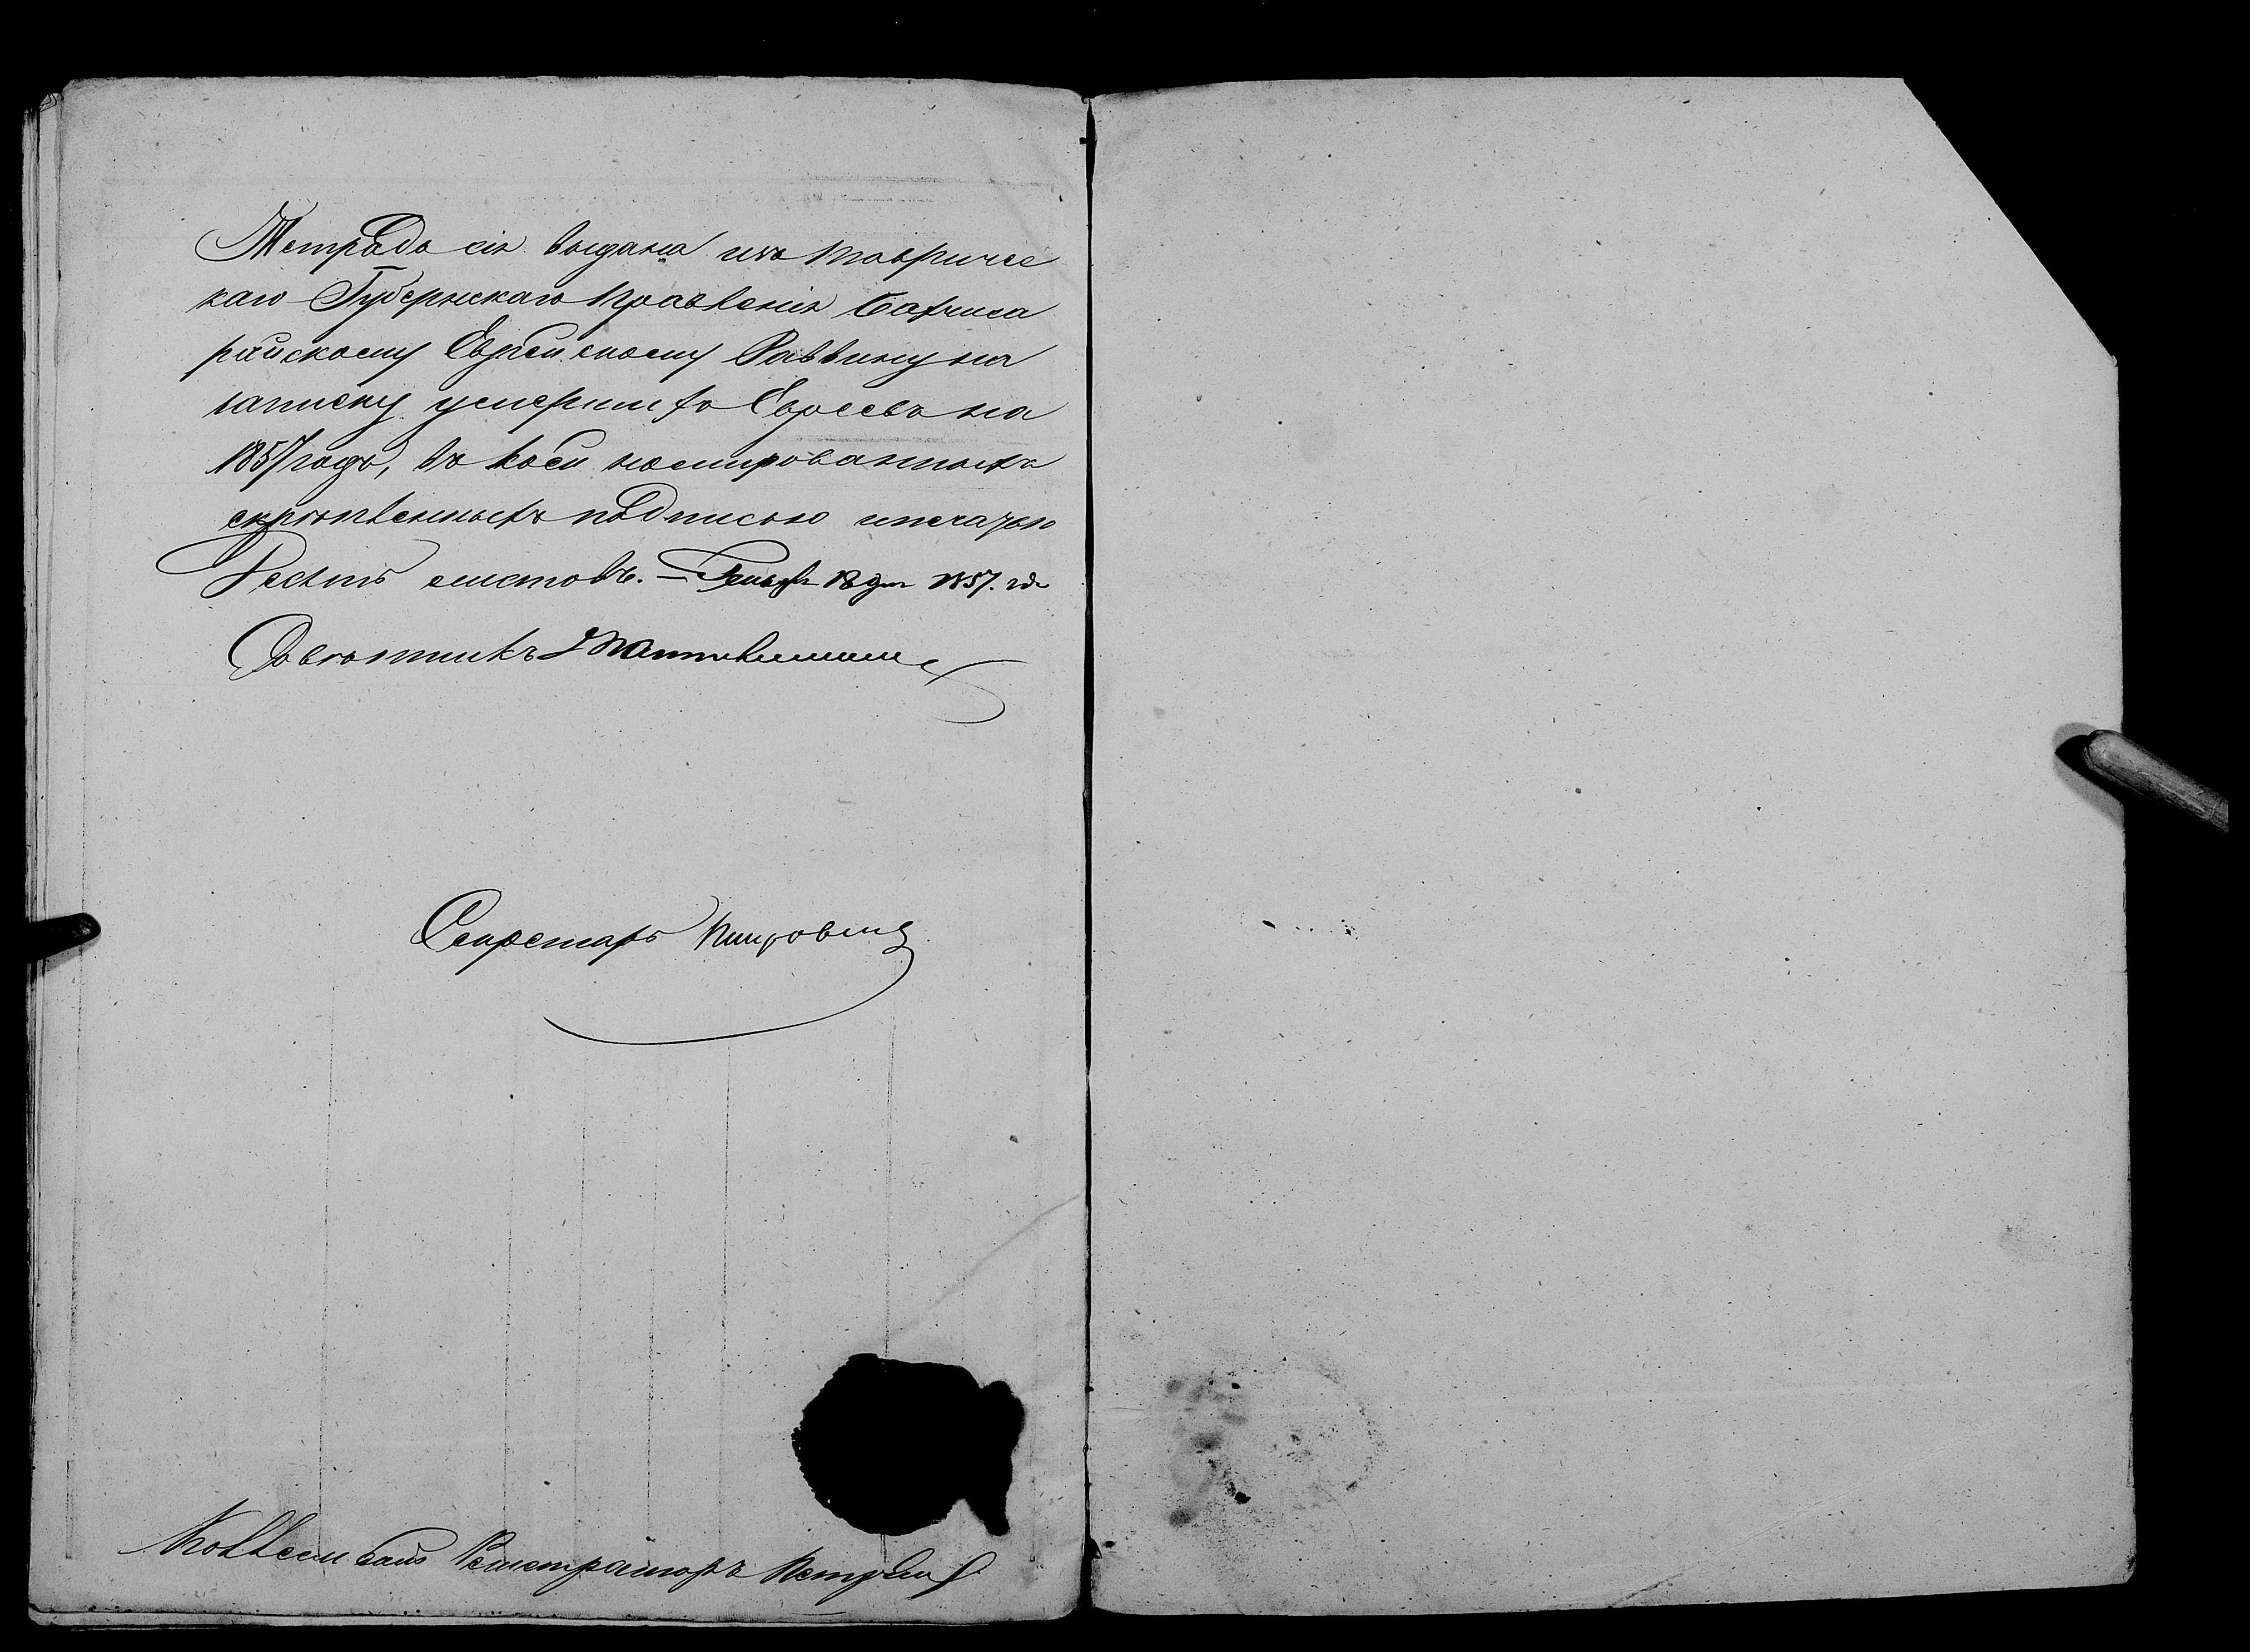 Тетрадь сія выдана изъ Тавричес
каго Губернскаго Правленія Бахчиса
райскому Еврейскому Раввину на
записку умершихъ Евреевъ на
1857 годъ, въ коей номированныхъ
скрѣпленныхъ подписью и печатью
Десять листовъ. — Генваря 18 дня 1857. года
Совѣтникъ
Секретарь
Коллежскій Регистраторъ